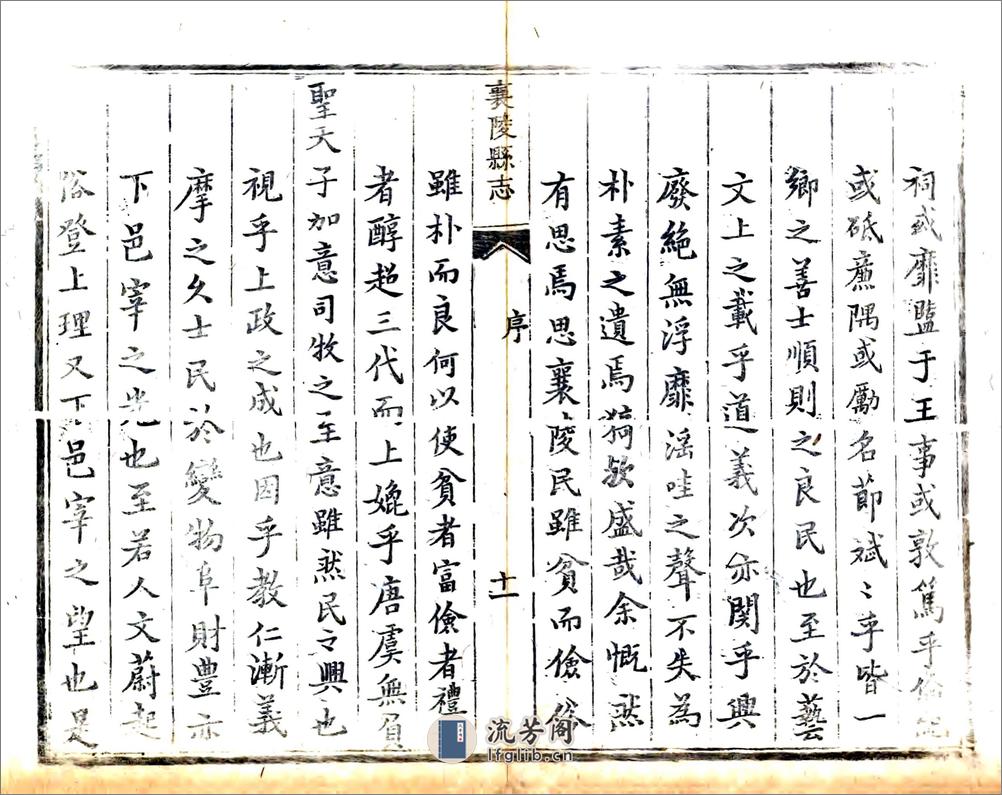 祠或靡盬于王事或敦篤乎倫
或砥亷隅或勵名節斌〻乎皆一
鄉之善士順則之良民也至於藝
文上之載乎道義次亦関乎興
廢絶無浮靡滛哇之聲不失為
朴素之遺焉猗歟盛哉余慨然
有思焉思襄陵民雖貧而儉俗
襄陵縣志
序
十一
雖朴而良何以使貧者富儉者禮
者醇超三代而上媲乎唐虞無負
聖天子加意司牧之至意雖然民之興也
視乎上政之成也因乎教仁漸義
摩之久士民於變物阜財豊亦
下邑宰之光也至若人文蔚起
俗登上理又下邑宰之望也是
流芳阁
lfglib.cn